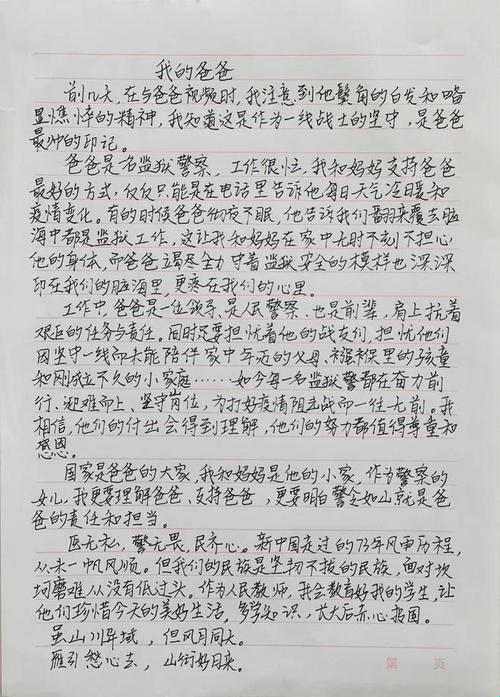 我的爸爸
前几天,在与爸爸视频时,我注意到他鬓角的白发和略
显憔悴的精神,我知道这是作为一线战士的坚守,是爸爸
最帅的印记。
爸爸是名监狱警察,工作很忙,我和妈妈支持爸爸
最好的方式,仅仅只能是在电话里告诉他每日天气冷暖和
疫情变化。有的时候爸爸彻夜不眠,他告诉我们翻来覆去脑
海中都是监狱工作,这让我和妈妈在家中无时不刻不担心
他的身体,而爸爸竭尽全力守着监狱安全的模样也深深
印在我们的脑海里,更落在我们的心里。
工作中,爸爸是一位领导、是人民警察、也是前辈,肩上扛着
艰巨的任务与责任。同时还要担忧着他的战友们,担忧他们
因坚守一线而未能陪伴家中年迈的父母、襁褓里的孩童
和刚成立不久的小家庭……如今每一名监狱警都在奋力前
行、迎难而上、坚守岗位,为打好疫情阻击战而一往无前。我
相信,他们的付出会得到理解,他们的努力都值得尊重和
感恩。
国家是爸爸的大家,我和妈妈是他的小家,作为警察的
女儿,我更要理解爸爸、支持爸爸,更要明白警令如山就是爸
爸的责任和担当。
医无私,警无畏,民齐心。新中国走过的73年风雨历程,
从未一帆风顺。但我们的民族是坚韧不拔的民族,面对坎
坷磨难从没有低过头。作为人民教师,我会教育好我的学生,让
他们珍惜今天的美好生活,多学知识,长大后赤心报国。
虽山川异域,但风月同天。
雁引愁心去,山衔好月来。
第 页